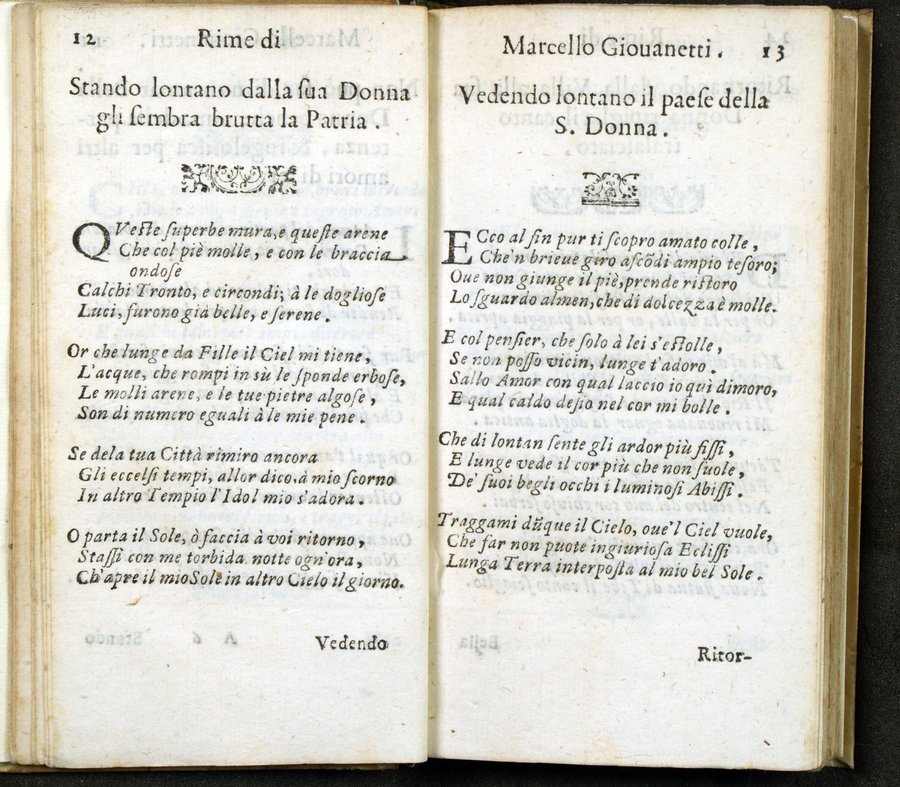 12 Rime di
Stando lontano dalla sua Donna
gli sembra brutta la Patria.
QVeste superbe mura, e queste arene
Che col piè molle, e con le braccia
ondose
Calchi Tronto, e circondi, à le dogliose
Luci, furono già belle, e serene.
Or che lunge da Fille il Ciel mi tiene,
L'acque, che rompi in sù le sponde erbose,
Le molli arene, e le tue pietre algose,
Son di numero eguali à le mie pene.
Se dela tua Città rimiro ancora
Gli eccelsi tempi, allor dico, à mio scorno
In altro Tempio l'Idol mio s'adora.
O parta il Sole, ò faccia à voi ritorno,
Stassi con me torbida notte ogn'ora,
Ch'apre il mio Sole in altro Cielo il giorno.
Vedendo
Marcello Giouanetti. 13
Vedendo lontano il paese della
S. Donna.
ECco al fin pur ti scopro amato colle,
Che'n brieue giro ascõdi ampio tesoro;
Oue non giunge il piè, prende ristoro
Lo sguardo almen, che di dolcezza è molle.
E col pensier, che solo à lei s'estolle,
Se non posso vicin, lunge t'adoro.
Sallo Amor con qual laccio io quì dimoro,
E qual caldo desio nel cor mi bolle.
Che di lontan sente gli ardor più fissi,
E lunge vede il cor più che non suole,
De' suoi begli occhi i luminosi Abissi.
Traggami dũque il Cielo, oue'l Ciel vuole,
Che far non puote ingiuriosa Eclissi
Lunga Terra interposta al mio bel Sole.
Ritor-